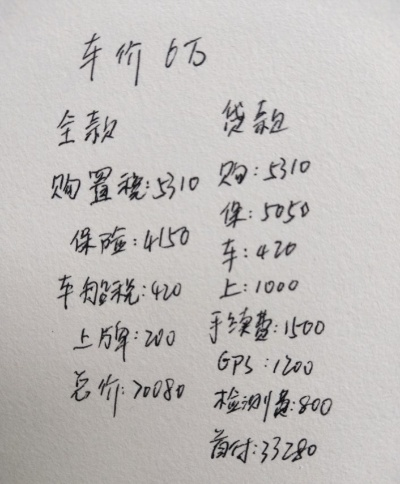 车价6万
全款
购置税:5310
保险:4150
车船税:420
上牌:200
总价:70080
贷款
购:5310
保:5050
车:420
上:1000
手续费:1500
GPS:1200
检测费:800
首付:33280